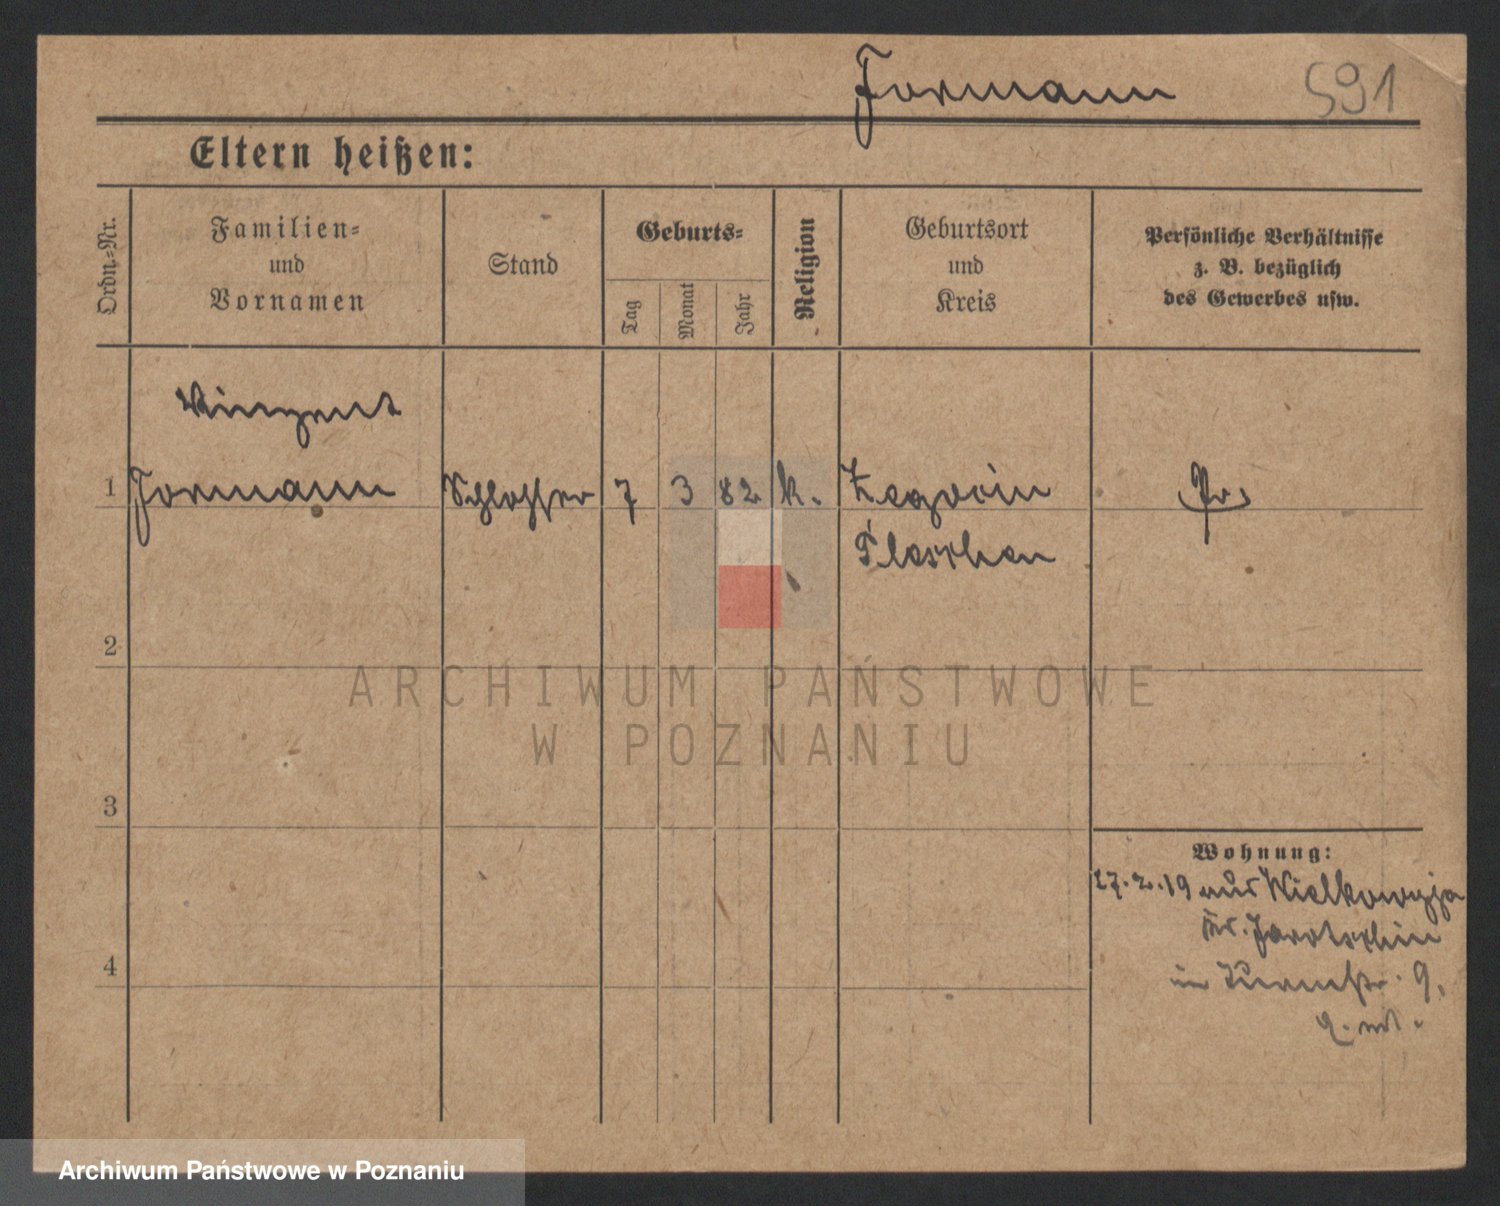 Formann 591
Eltern heißen:
Ordn.-Nr.
Familien-
und
Vornamen
Stand
Geburts-
Tag
Monat
Jahr
Religion
Geburtsort
und
Kreis
Persönliche Verhältnisse
z. B. bezüglich
des Gewerbes usw.
Vinzent
1 Formann Schlosser 7 3 82 k. Zegocin Pr.
Pleschen
2
ARCHIWUM PAŃSTWOWE
W POZNANIU
3
Wohnung:
17.2.19 aus Wielkowyja
Kr. Jarotschin
in Turmstr. 9,
4
Archiwum Państwowe w Poznaniu